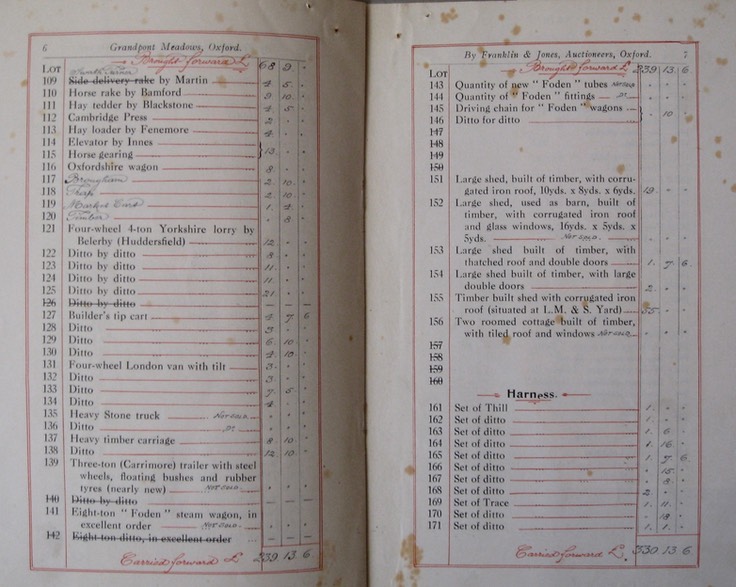 6 Grandpont Meadows, Oxford.
Brought forward £ 68 9 -
LOT
109 Side delivery rake by Martin 4 5 -
110 Horse rake by Bamford 9 10 -
111 Hay tedder by Blackstone 4 5 -
112 Cambridge Press 2 - -
113 Hay loader by Fenemore 4 - -
114 Elevator by Innes
115 Horse gearing } 13 - -
116 Oxfordshire wagon 8 - -
117 Brougham 2 10 -
118 2 10 -
119 Market Cart 1 -
120 Timber - 8 -
121 Four-wheel 4-ton Yorkshire lorry by
Belerby (Huddersfield) 12 - -
122 Ditto by ditto 8 - -
123 Ditto by ditto 11 - -
124 Ditto by ditto 11 - -
125 Ditto by ditto 21 - -
126 Ditto by ditto — — —
127 Builder's tip cart 4 7 6
128 Ditto 3 - -
129 Ditto 6 10 -
130 Ditto 4 10 -
131 Four-wheel London van with tilt 3 - -
132 Ditto 3 - -
133 Ditto 7 5 -
134 Ditto 4 - -
135 Heavy Stone truck NOT SOLD - - -
136 Ditto Do - - -
137 Heavy timber carriage 8 10 -
138 Ditto 12 10 -
139 Three-ton (Carrimore) trailer with steel
wheels, floating bushes and rubber
tyres (nearly new) NOT SOLD - - -
140 Ditto by ditto — — —
141 Eight-ton "Foden" steam wagon, in
excellent order NOT SOLD - - -
142 Eight-ton ditto, in excellent order — — —
Carried forward £ 239 13 6
By Franklin & Jones, Auctioneers, Oxford. 7
Brought forward £ 239 13 6
LOT
143 Quantity of new "Foden" tubes NOT SOLD - - -
144 Quantity of "Foden" fittings Do - - -
145 Driving chain for "Foden" wagons
146 Ditto for ditto } - 10 -
147
148
149
150
151 Large shed, built of timber, with corru-
gated iron roof, 10yds. x 8yds. x 6yds. 19 - -
152 Large shed, used as barn, built of
timber, with corrugated iron roof
and glass windows, 16yds. x 5yds. x
5yds. NOT SOLD - - -
153 Large shed built of timber, with
thatched roof and double doors 1 7 6
154 Large shed built of timber, with large
double doors 2 - -
155 Timber built shed with corrugated iron
roof (situated at L.M. & S. Yard) 55 - -
156 Two roomed cottage built of timber,
with tiled roof and windows NOT SOLD - - -
157
158
159
160
Harness.
161 Set of Thill 1 - -
162 Set of ditto 1 - -
163 Set of ditto 1 6 -
164 Set of ditto 1 16 -
165 Set of ditto 1 7 6
166 Set of ditto - 15 -
167 Set of ditto - 8 -
168 Set of ditto 2 - -
169 Set of Trace 1 11 -
170 Set of ditto - 18 -
171 Set of ditto 1 1 -
Carried forward £